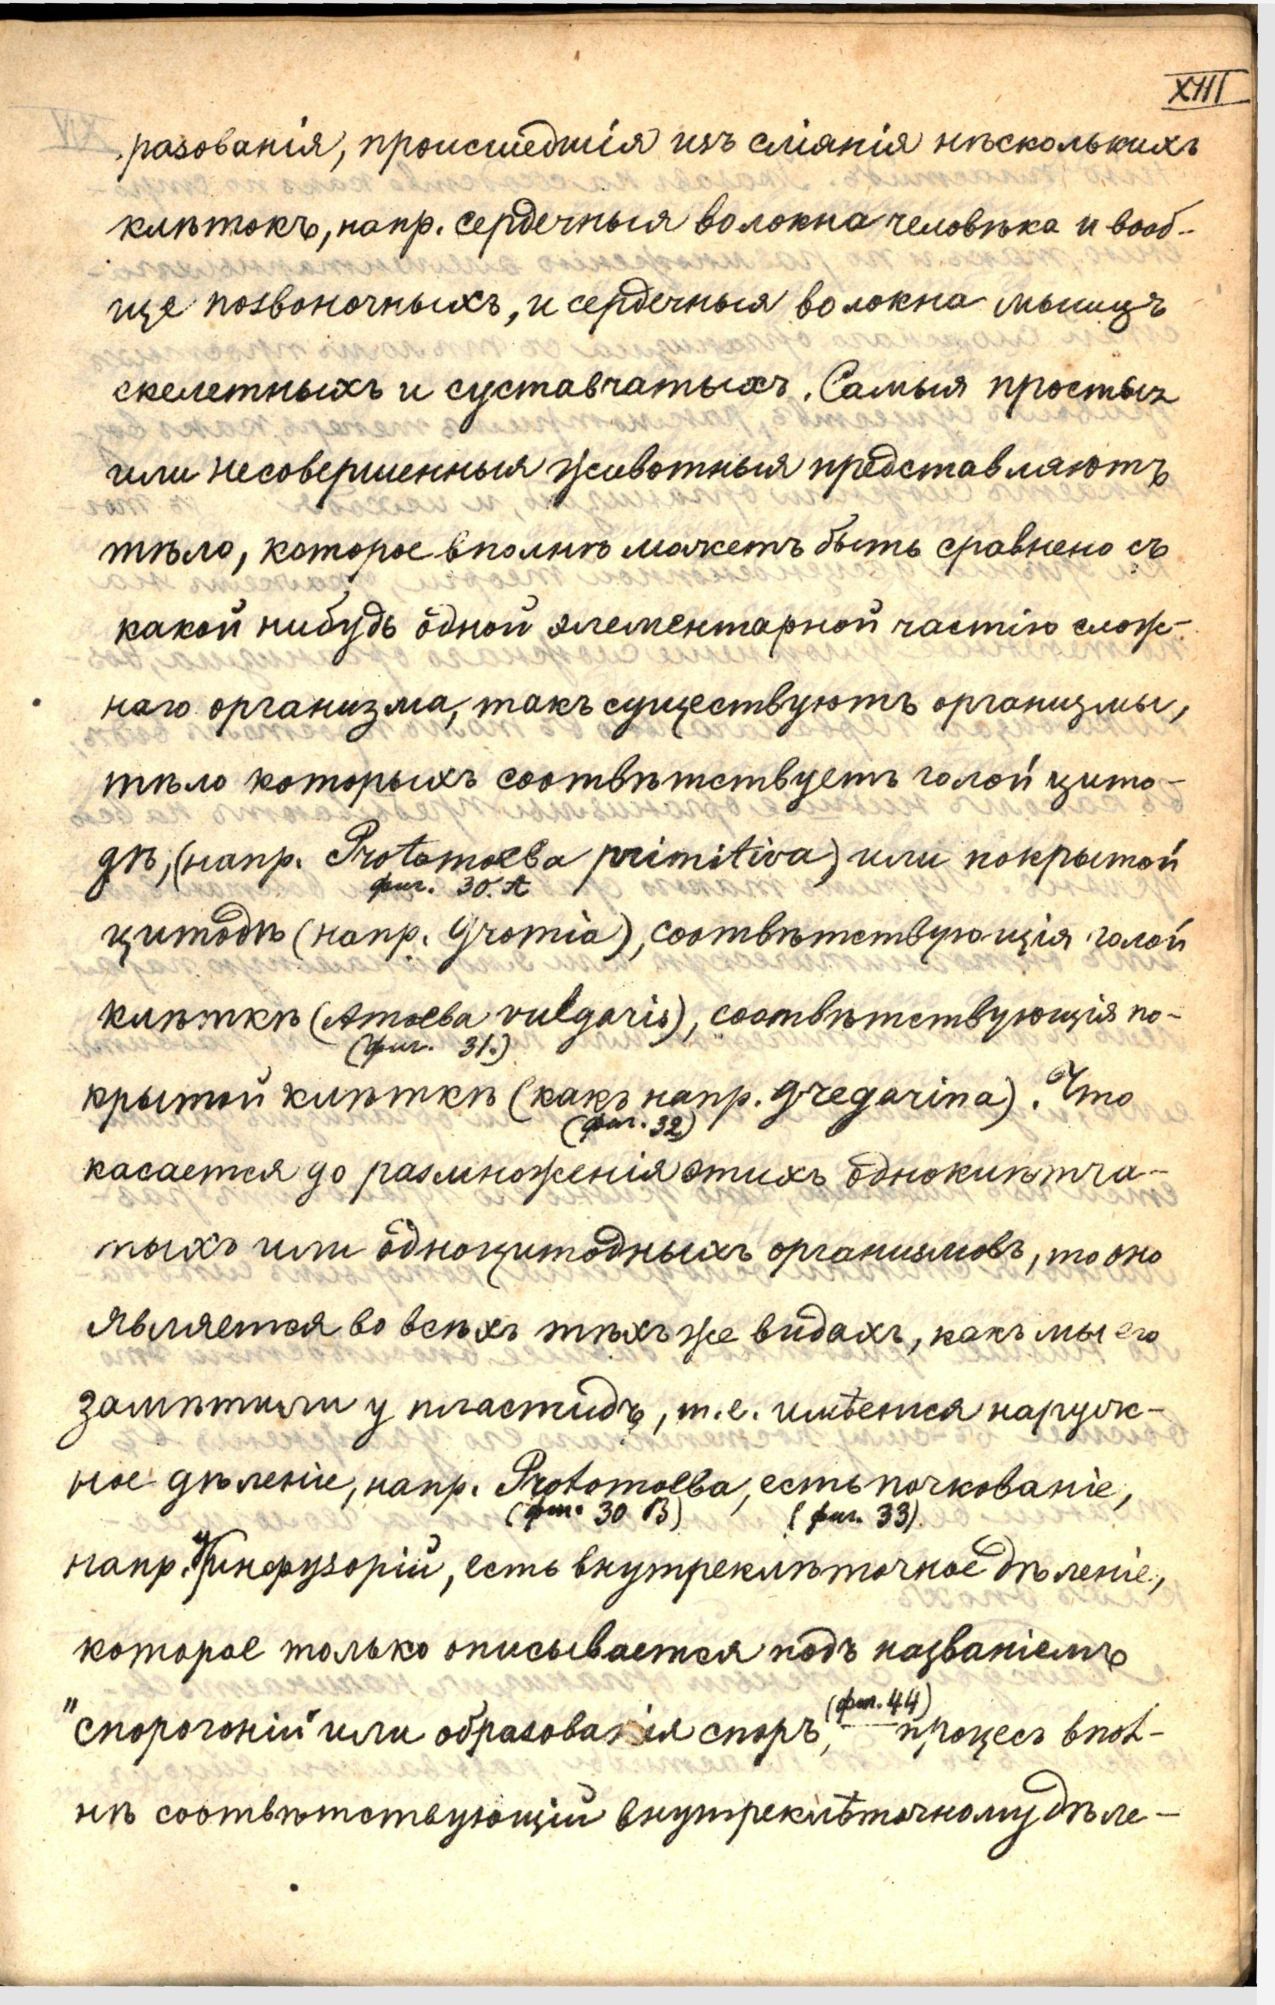 XIII
разованія, происшедшія изъ сліянія нѣсколькихъ
клѣтокъ, напр. сердечныя волокна человѣка и вооб-
ще позвоночныхъ, и сердечныя волокна мышцъ
скелетныхъ и суставчатыхъ. Самыя простыя
или несовершенныя животныя представляютъ
тѣло, которое вполнѣ можетъ быть сравнено съ
какой нибудь одной элементарной частію слож-
наго организма, такъ существуютъ организмы,
тѣло которыхъ соотвѣтствуетъ голой цито-
дѣ, (напр. Protamoeba primitiva) или покрытой
фиг. 30. A
цитодѣ (напр. Gromia), соотвѣтствующія голой
клѣткѣ (Amoeba vulgaris), соотвѣтствующія по-
(фиг. 31.)
крытой клѣткѣ (какъ напр. Gregarina). Что
(фиг. 32)
касается до размноженія этихъ одноклѣтча-
тыхъ или одноцитодныхъ организмовъ, то оно
является во всѣхъ тѣхъ же видахъ, какъ мы его
замѣтили у пластидъ, т.е. имѣется наруж-
ное дѣленіе, напр. Protomoeba, есть почкованіе,
(фиг. 30 B) (фиг. 33)
напр. у инфузорій, есть внутреклѣточное дѣленіе,
которое только описывается подъ названіемъ
(фиг. 44)
"спорогоній" или образованія споръ, — процесъ впол-
нѣ соотвѣтствующій внутреклѣточному дѣле-